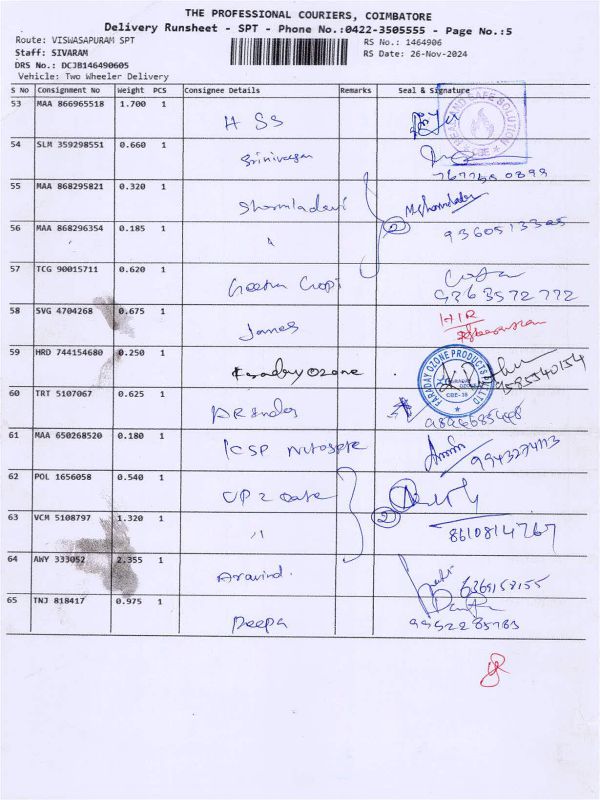 THE PROFESSIONAL COURIERS, COIMBATORE
Delivery Runsheet - SPT - Phone No.:0422-3505555 - Page No.:5
Route: VISWASAPURAM SPT
RS No.: 1464906
Staff: SIVARAM
RS Date: 26-Nov-2024
DRS No.: DCJB146490605
Vehicle: Two Wheeler Delivery
S No Consignment No Weight PCS Consignee Details Remarks Seal & Signature
53 MAA 866965518 1.700 1
H SS
54 SLM 359298551 0.660 1
Srinivasan
55 MAA 868295821 0.320 1
Sharmiladevi
56 MAA 868296354 0.185 1
"
2
57 TCG 90015711 0.620 1
Geetha Gopi
9363572772
58 SVG 4704268 0.675 1
James
H/R
59 HRD 744154680 0.250 1
Faraday Ozone
FARADAY OZONE PRODUCTS PVT LTD
CBE-35
9585540154
60 TRT 5107067 0.625 1
61 MAA 650268520 0.180 1
9943274113
62 POL 1656058 0.540 1
UP 2 Date
63 VCM 5108797 1.320 1
"
2
8610814767
64 AWY 333052 2.355 1
Aravind.
65 TNJ 818417 0.975 1
Deepa